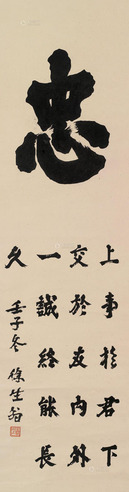 忠
上事於君下
交於友内外
一誠終能長
久
壬子冬 徐生翁